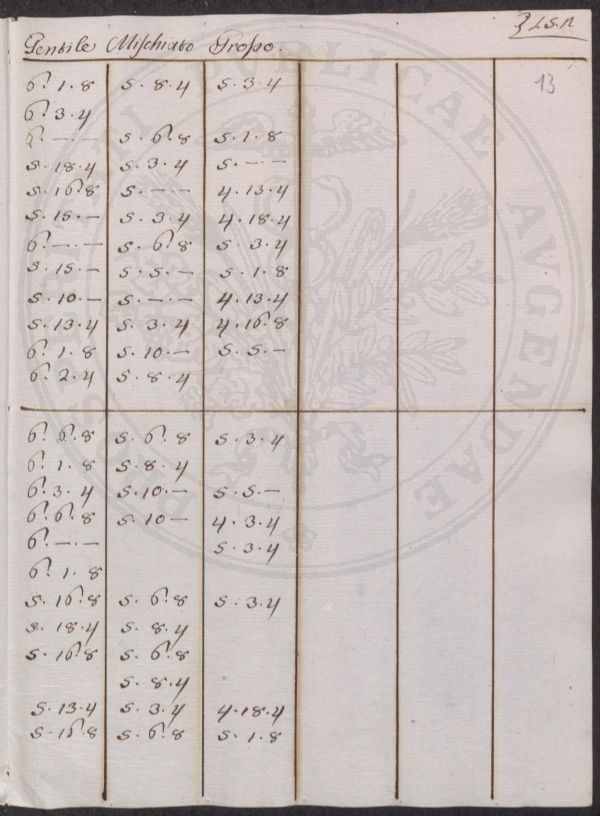 Gentile Mischiato Grosso.
13
6. 1. 8 5. 8. 4 5. 3. 4
6. 3. 4
6. —. — 5. 6. 8 5. 1. 8
5. 18. 4 5. 3. 4 5. —. —
5. 16. 8 5. —. — 4. 13. 4
5. 15. — 5. 3. 4 4. 18. 4
6. —. — 5. 6. 8 5. 3. 4
5. 15. — 5. 5. — 5. 1. 8
5. 10. — 5. —. — 4. 13. 4
5. 13. 4 5. 3. 4 4. 16. 8
6. 1. 8 5. 10 — 5. 5. —
6. 2. 4 5. 8. 4
6. 6. 8 5. 6. 8 5. 3. 4
6. 1. 8 5. 8. 4
6. 3. 4 5. 10. — 5. 5. —
6. 6. 8 5. 10 — 4. 3. 4
6. —. — 5. 3. 4
6. 1. 8
5. 16. 8 5. 6. 8 5. 3. 4
5. 18. 4 5. 8. 4
5. 16. 8 5. 6. 8
5. 8. 4
5. 13. 4 5. 3. 4 4. 18. 4
5. 16. 8 5. 6. 8 5. 1. 8
PUBLICAE
AVGENDAE